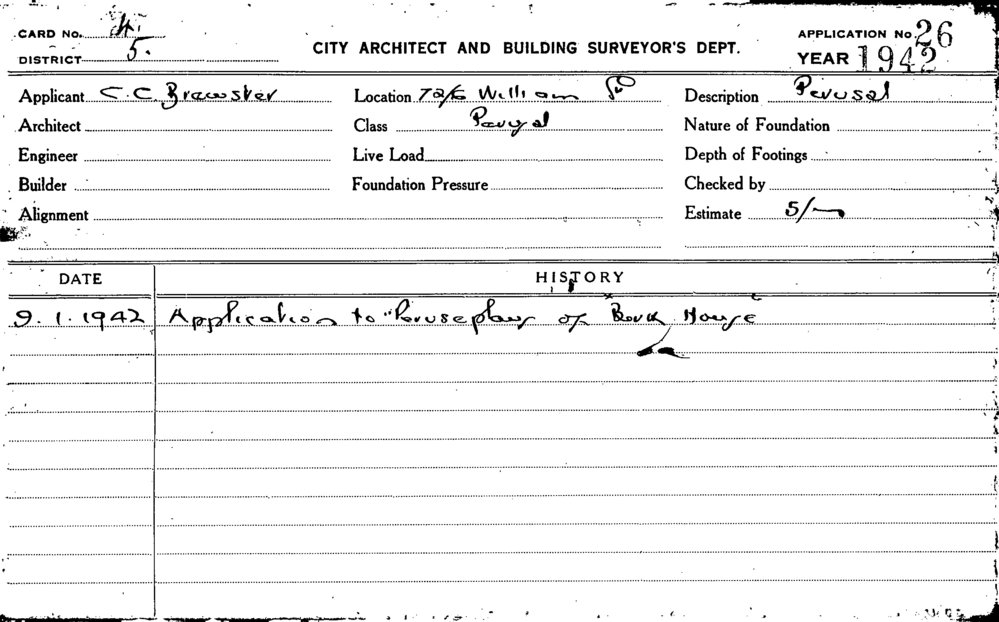 CARD No. 4.
DISTRICT 5.
CITY ARCHITECT AND BUILDING SURVEYOR'S DEPT.
APPLICATION No. 26
YEAR 1942
Applicant C. C Brewster Location 72/6 William St Description Perusal
Architect Class Perusal Nature of Foundation
Engineer Live Load Depth of Footings
Builder Foundation Pressure Checked by
Alignment Estimate 5/-
DATE HISTORY
9.1.1942 Application to Peruse plans of House